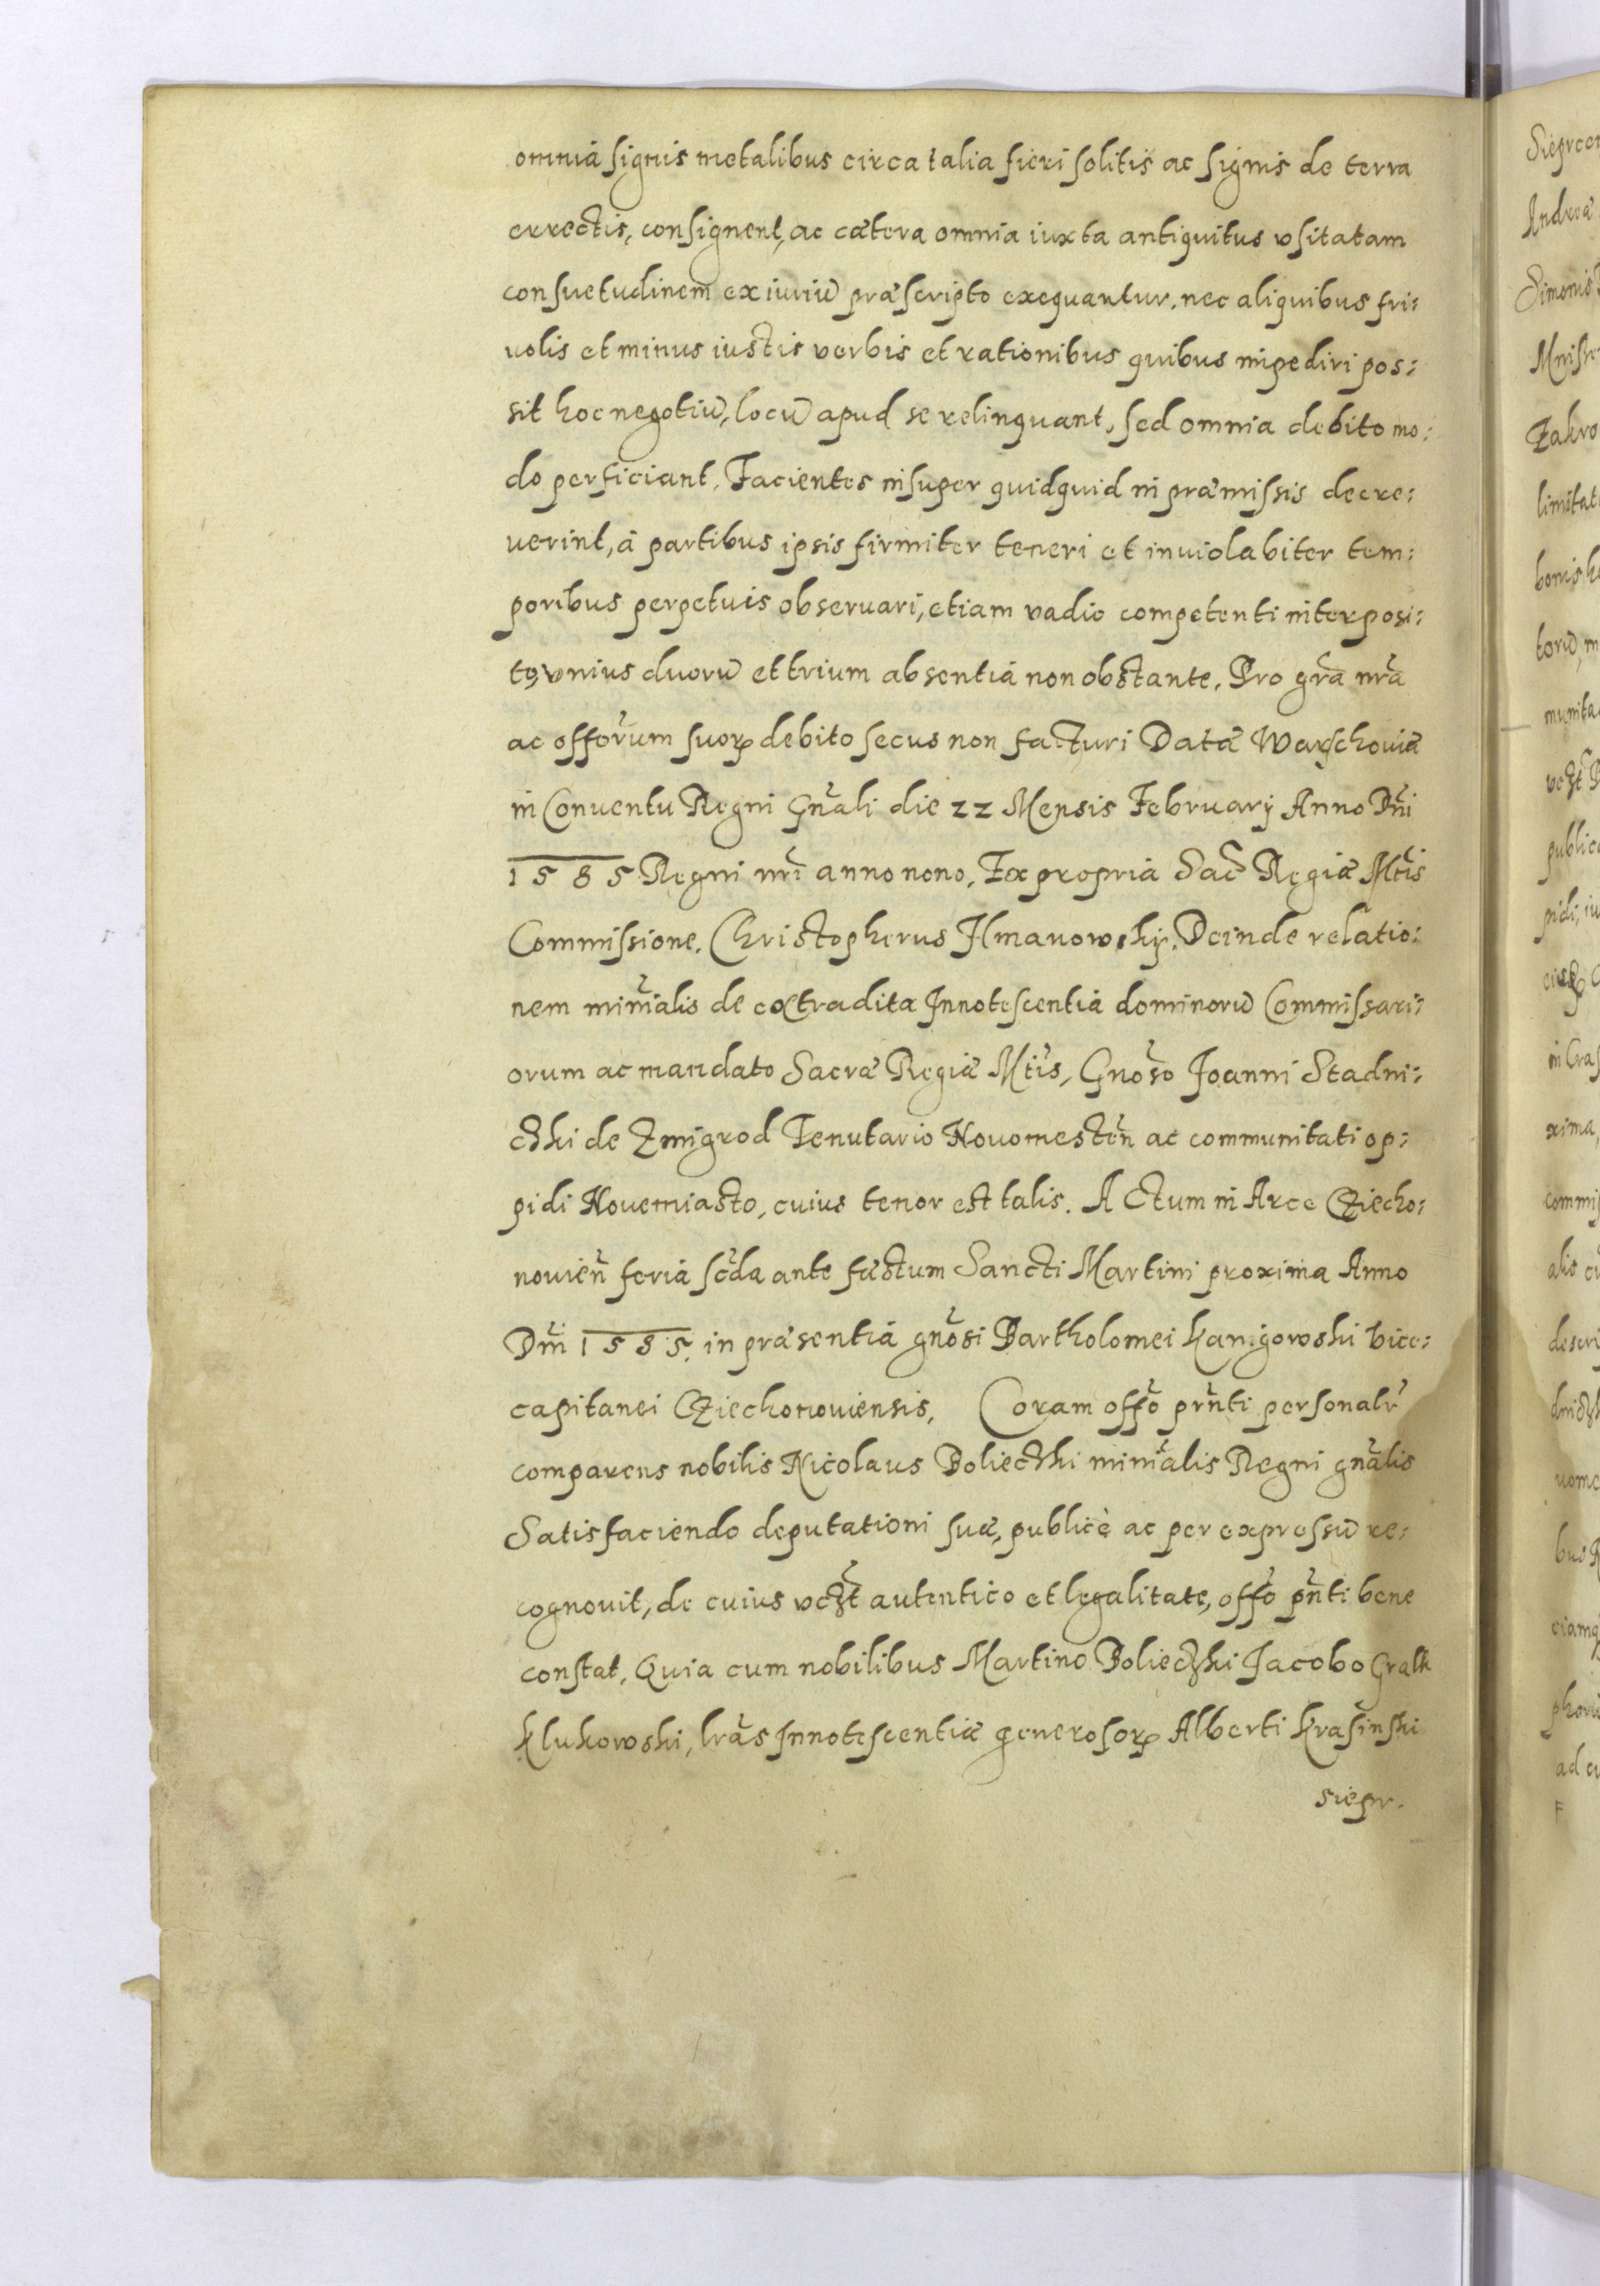 omnia signis metalibus circa talia fieri solitis ac signis de terra
errectis, consignent, ac cætera omnia iuxta antiquitus vsitatam
consuetudinem ex iuriū præscripto exequantur. nec aliquibus fri:
uolis et minus iustis verbis et rationibus quibus impediri pos:
sit hoc negotiū, locū apud se relinquant, sed omnia debito mo:
do perficiant. Facientes insuper quidquid in præmissis decre:
uerint, à partibus ipsis firmiter teneri et inuiolabiter tem:
poribus perpetuis obseruari, etiam vadio competenti interposi:
to, vnius duorū et trium absentiâ non obstante. Pro gr̃a nr̃a
ac offor̃um suorꝝ debito secus non facturi Datæ Warschouiæ
in Conuentu Regni Gñali die 22 Mensis February Anno Dñi
1585 Regni nr̃i anno nono. Ex propria Sac̃ Regiæ Mt̃is
Commissione. Christopherus Ilmanowsky. Deinde relatio:
nem minĩalis de extradita Innotescentiâ dominorū Commissari:
orum ac mandato Sacræ Regiæ Mt̃is, Gnos̃o Joanni Stadni:
czki de Zmigrod Tenutario Nouomesteñ ac communitati op:
pidi Nouemiasto, cuius tenor est talis. Actum in Arce Cziecho:
nouieñ feriâ sc̃da ante fæstum Sancti Martini proxima Anno
Dñi 1585. in præsentiâ gnõsi Bartholomei Kanigowski vice:
capitanei Cziechonouiensis, Coram offõ prñti personalr̃
comparens nobilis Nicolaus Bolieczki minĩalis Regni gnãlis
Satisfaciendo deputationi suæ, publicè ac per expressū re:
cognouit, de cuius vczt̃ autentico et legalitate, offõ pñti bene
constat. Quia cum nobilibus Martino Bolieczki Jacobo Gralk
Klukowski, lrãs Innotescentiæ generosorꝝ Alberti Krasinski
siepr.